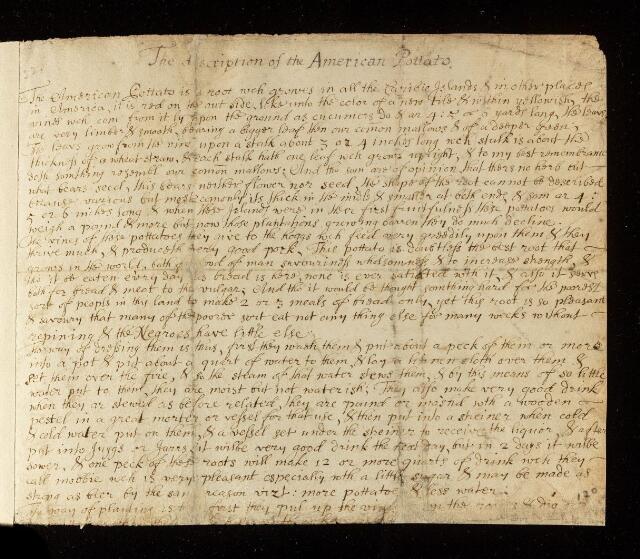 The description of the American Pottato.
The American Pottato is a root wch growes in all the Caribie Islands & in other places
in America, it is red on the out side, like unto the color of a new Tile & within yellowish, the
vines wch com from it ly upon the ground as cucumers do & ar 4: 5 or 6 yards long, the leaves
are very limber & smooth, bearing a bigger leaf then our comon mallows & of a deeper green,
The leavs grow from the vine upon a stalk about 3 or 4 inches long wch stalk is about the
thickness of a wheat straw, & each stalk hath one leaf wch grows upright, & to my best remembrance
doth somthing resembl our comon mallows: And tho som are of opinion that thers no herb but
what bears seed, this bears neither flower nor seed, The shape of the root cannot be described
because various but most comonly its thick in the midle & smaller at both ends, & som ar 4:
5 or 6 inches long & when these Islands were in there first fruitfulness these potatoes would
weigh a pound & more but now those plantations growing barren they do much decline.
The vines of those potatoes they give to the hoggs wch feed very greedily upon them & they
thrive much, & produceth very good pork. This pottato is doubtless the best root that
growes in the world, both food of man savourings wholsomness & to increase strength, &
tho it be eaten every day as bread is here, none is ever satiated with it, & also it serve
both for bread & meat to the vulgar. And tho it would be thought somthing hard for the poorest
sort of people in this land to make 2 or 3 meals of bread only, yet this root is so pleasant
& savoury that many of the poorer sort eat not any thing else for many weeks without
repining & the Negroes have little else.
way of dressing them is thus, first they wash them & put about a peck of them or more
into a pot & put about a quart of water to them & lay a linnen cloth over them &
set them over the fire, & so the steam of that water stews them, & by this means of so little
water put to them, they are moist but not waterish. They also make very good drink
when they ar stewed as before related, they are pound or mashd with a wooden
pestel in a great morter or vessel for that use, & then put into a streiner when cold
& cold water put on them, & a vessel set under the streiner to receive the liquor, & after
put into Juggs or Jarrs it wilbe very good drink the next day, but in 2 days it wilbe
sower, & one peck of these roots will make 12 or more quarts of drink wch they
call moobie wch is very pleasant especially with a little sugar & may be made as
strong as beer by the sam reason vizt: more pottatoes & less water:
way of planting is first they put up the vine in the
120